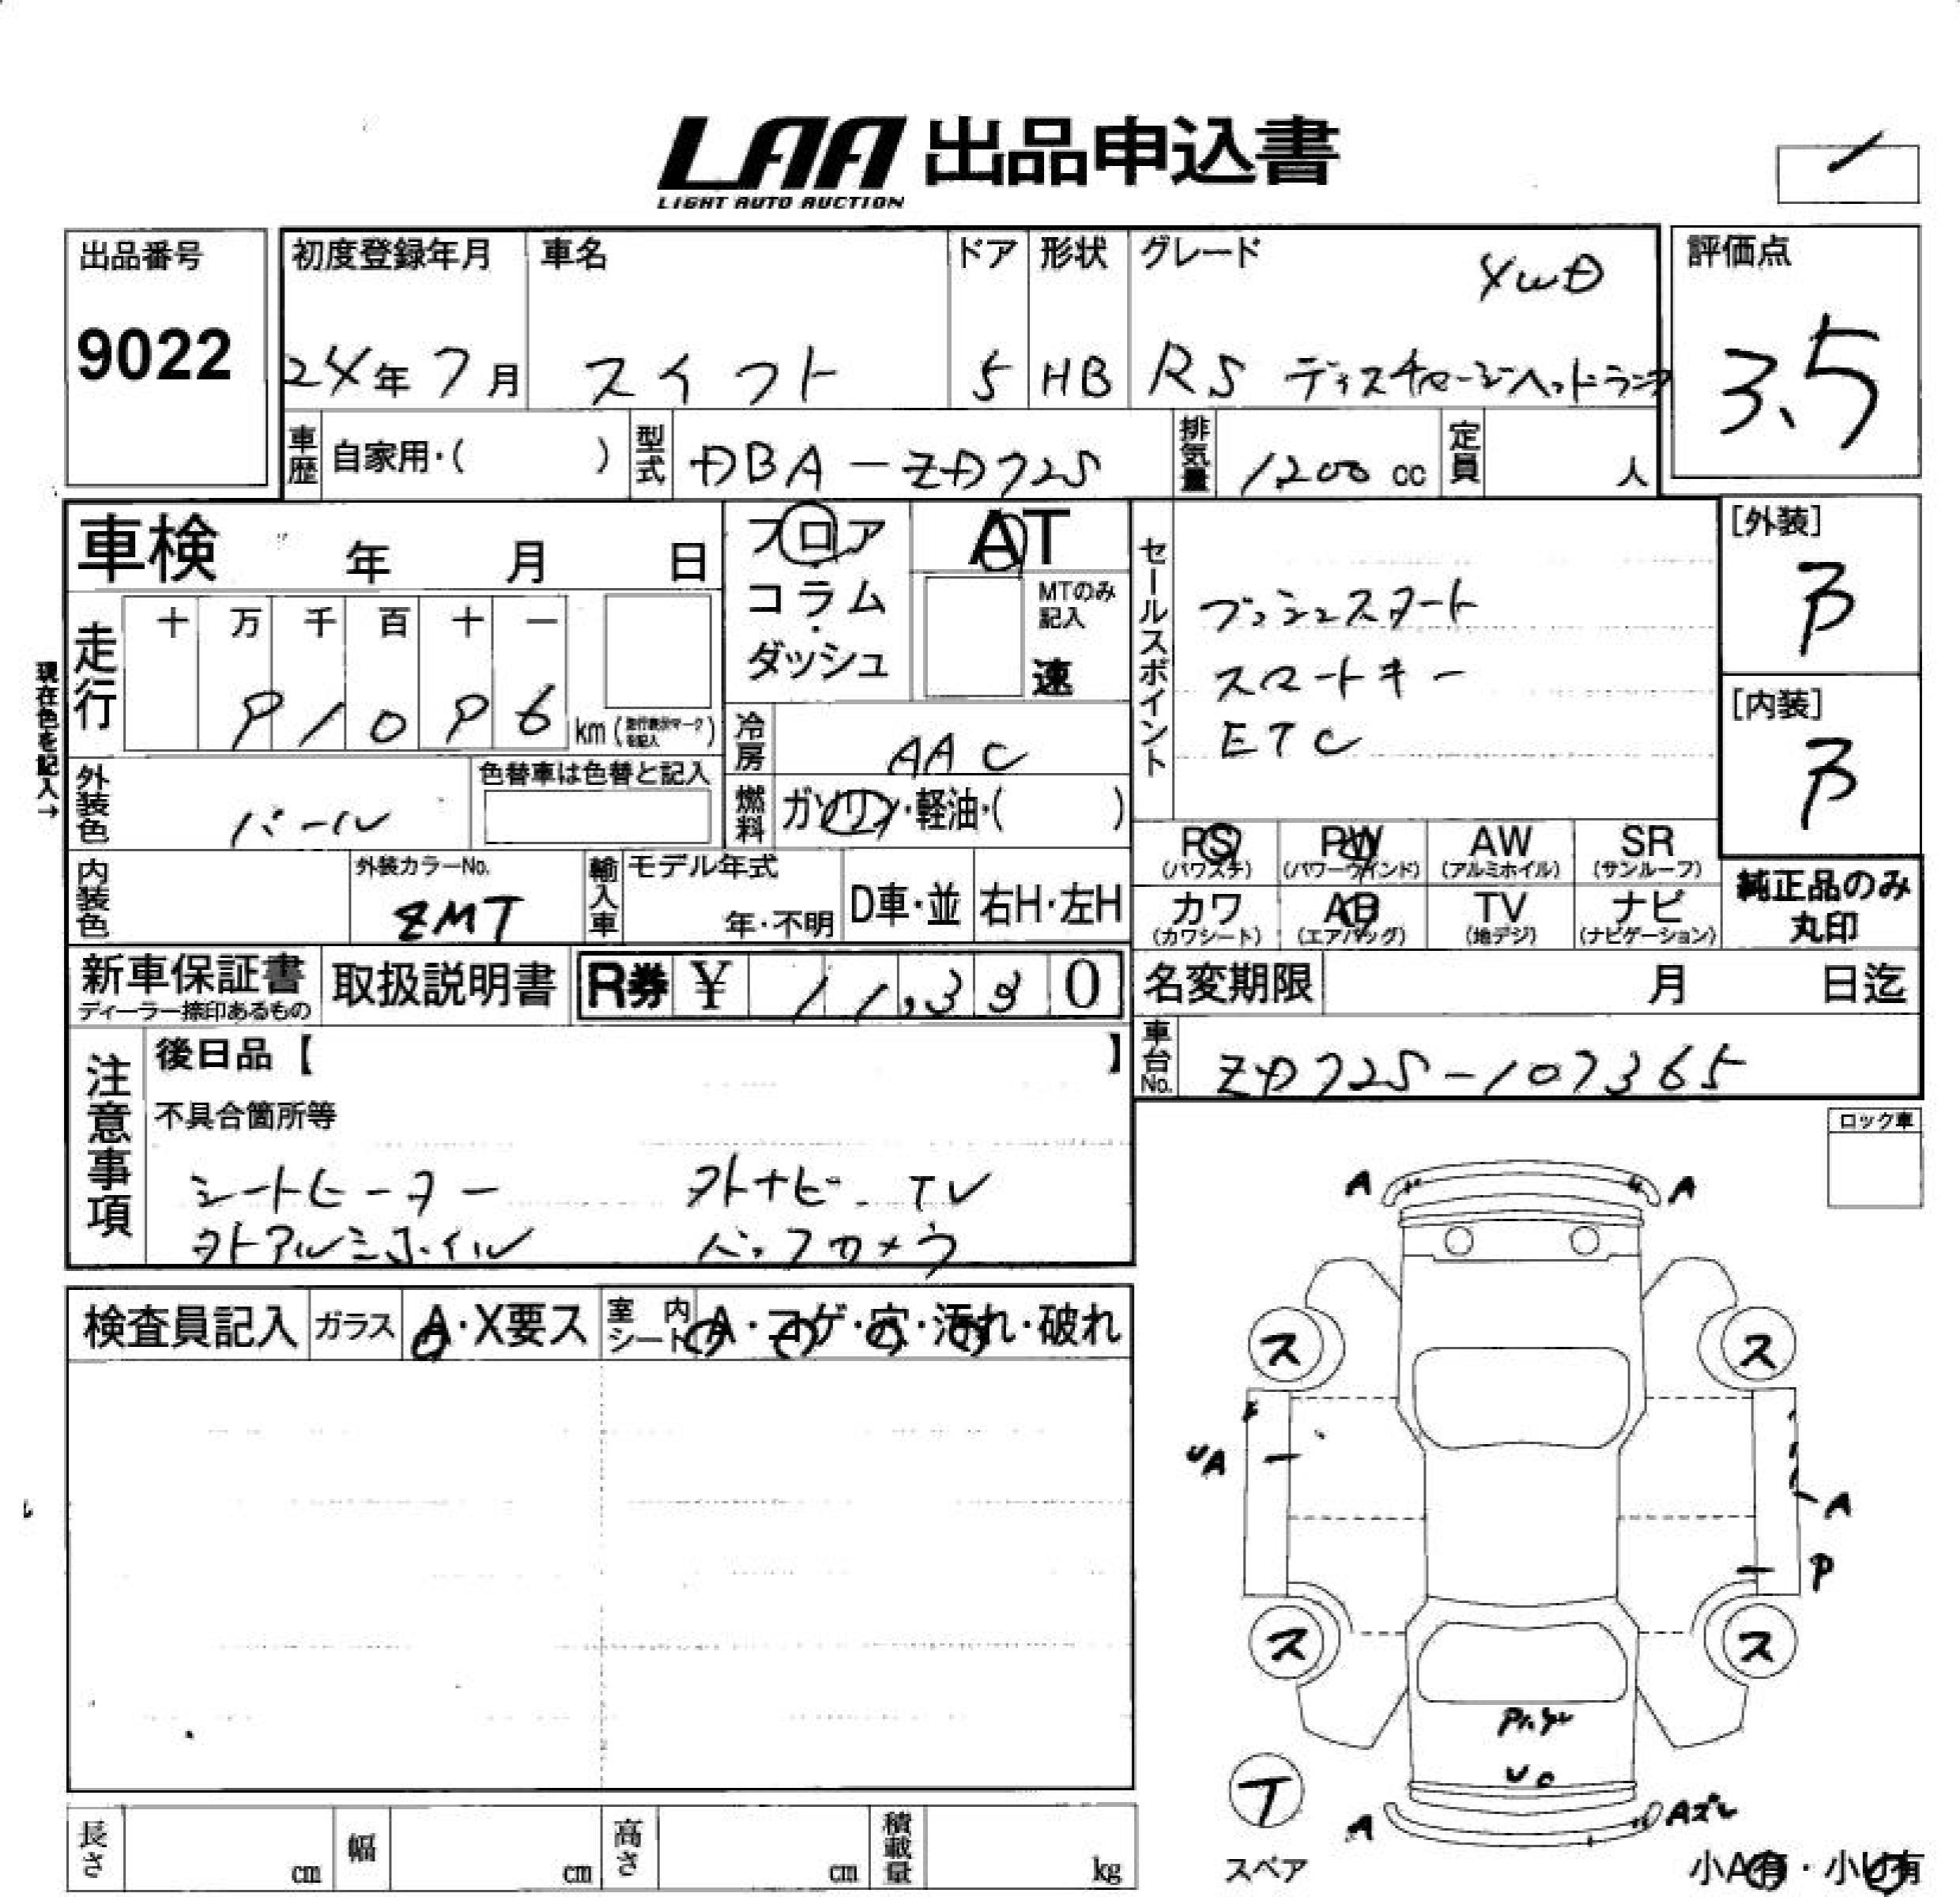 LAA 出品申込書
LIGHT AUTO AUCTION
出品番号
9022
初度登録年月
24年7月
車名
スイフト
ドア
5
形状
HB
グレード
4WD
RS ディスチャージヘッドランプ
評価点
3.5
車歴
自家用・( )
型式
DBA-ZD72S
排気量
1200 cc
定員
人
車検 年 月 日
フロア
コラム
・
ダッシュ
AT
MTのみ
記入
速
セールスポイント
プッシュスタート
スマートキー
ETC
[外装]
B
[内装]
B
現在色を記入→
走行
十 万 千 百 十 一
9 1 0 9 6 km (走行表示マークを記入)
冷房
AAC
燃料
ガソリン・軽油・( )
外装色
パール
色替車は色替と記入
内装色
外装カラーNo.
ZMT
輸入車
モデル年式
年・不明
D車・並
右H・左H
PS
(パワステ)
PW
(パワーウインド)
AW
(アルミホイル)
SR
(サンルーフ)
カワ
(カワシート)
AB
(エアバッグ)
TV
(地デジ)
ナビ
(ナビゲーション)
純正品のみ
丸印
新車保証書
ディーラー捺印あるもの
取扱説明書
R券 ¥ 11,330
名変期限 月 日迄
車台No.
ZD72S-107365
注意事項
後日品【 】
不具合箇所等
シートヒーター 外ナビ TV
外アルミホイル バックカメラ
ロック車
検査員記入
ガラス
A・X要ス
室内
シート
A・コゲ・穴・汚れ・破れ
A A
ス ス
UA
A
P
ス ス
UC
A Aズレ
T
スペア
小A有・小U有
長さ cm
幅 cm
高さ cm
積載量 kg